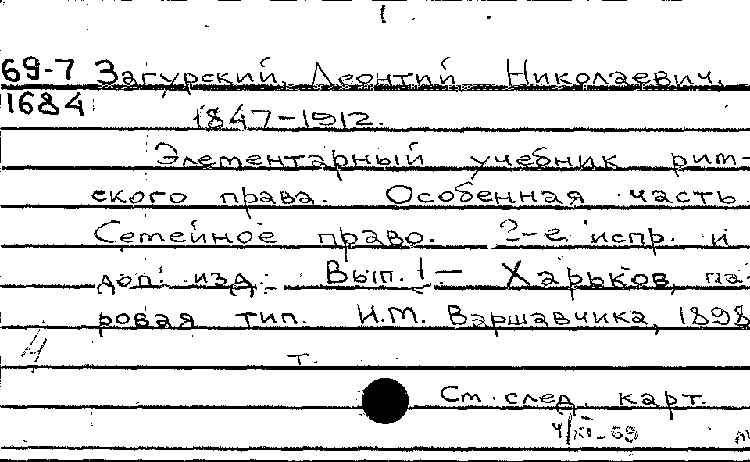 1
69-7 Загурский, Леонтий Николаевич.
1684
1847-1912.
Элементарный учебник рим-
ского права. Особенная часть
Семейное право. 2-е испр. и
доп. изд. Вып. 1 - Харьков, па
ровая тип. И.М. Варшавчика, 1898
4
т.
См. след. карт.
4/XI-69